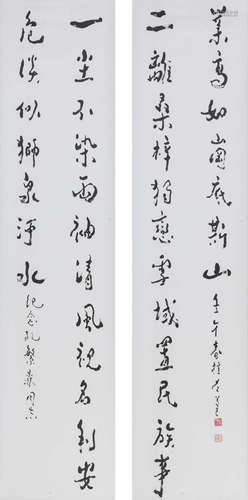 一尘不染两袖清風視名利安
危淡似獅泉淨水
紀念孔繁森同志
二離桑梓獨戀雪域置民族事
業高如岡底斯山
壬午春桂